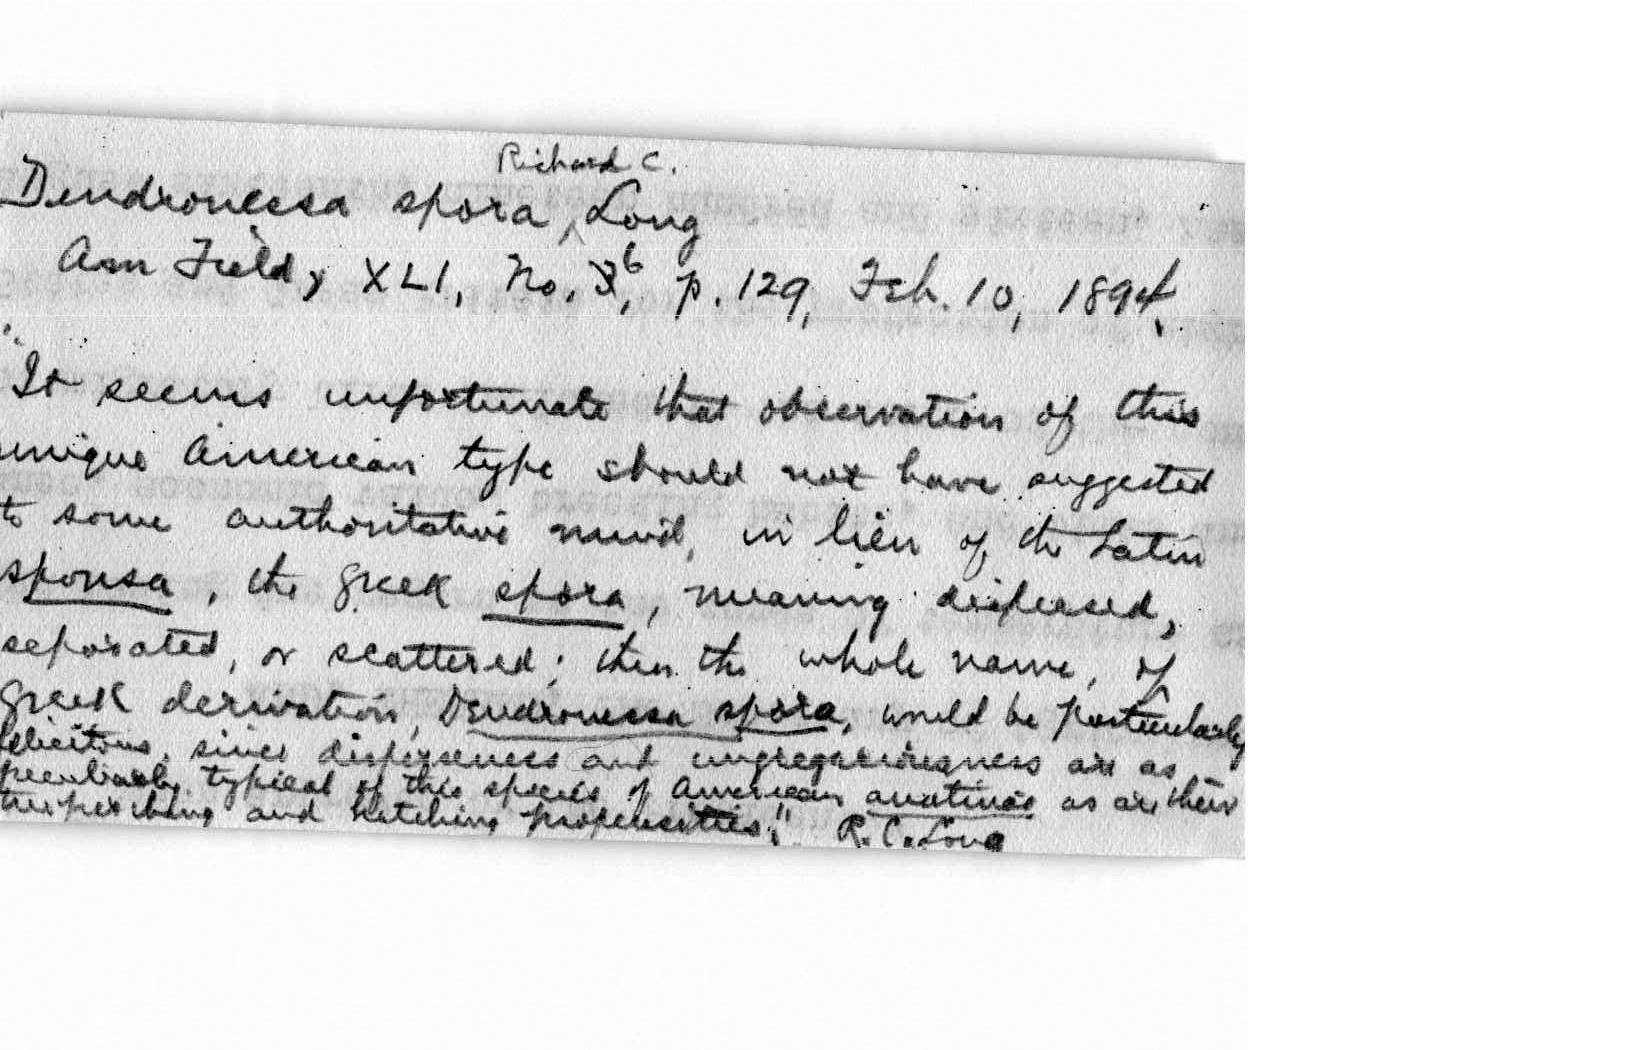 Richard C.
Dendronessa spora ^ Long
Am Field, XLI, No. 6, p. 129, Feb. 10, 1894.
"It seems unfortunate that observation of this
unique American type should not have suggested
to some authoritative mind, in lieu of the Latin
sponsa, the Greek spora, meaning dispersed,
separated, or scattered; then the whole name, of
Greek derivation, Dendronessa spora, would be particularly
felicitous, since disperseness and ungregariousness are as
peculiarly typical of this species of American anatinae as are their
tree perching and hatching propensities." R. C. Long